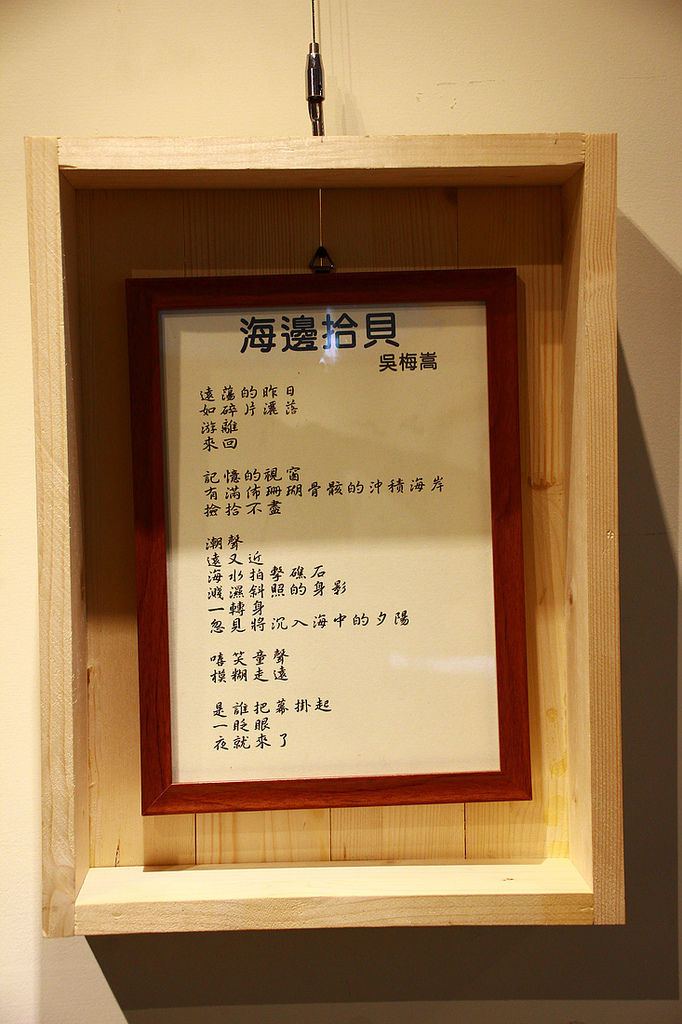 海邊拾貝
吳梅嵩
遠蕩的昨日
如碎片灑落
游離
來回
記憶的視窗
有滿佈珊瑚骨骸的沖積海岸
撿拾不盡
潮聲
遠又近
海水拍擊礁石
濺濕斜照的身影
一轉身
忽見將沉入海中的夕陽
嘻笑童聲
模糊走遠
是誰把幕掛起
一眨眼
夜就來了